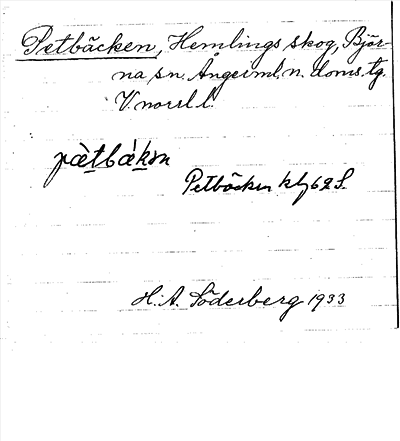 Petbäcken, Hemlings skog, Björ-
na sn. Ångerml. n. doms. tg.
V.norrl l.
pàtbákɘn
Petbäcken kbl 62 S.
H. A. Söderberg 1933